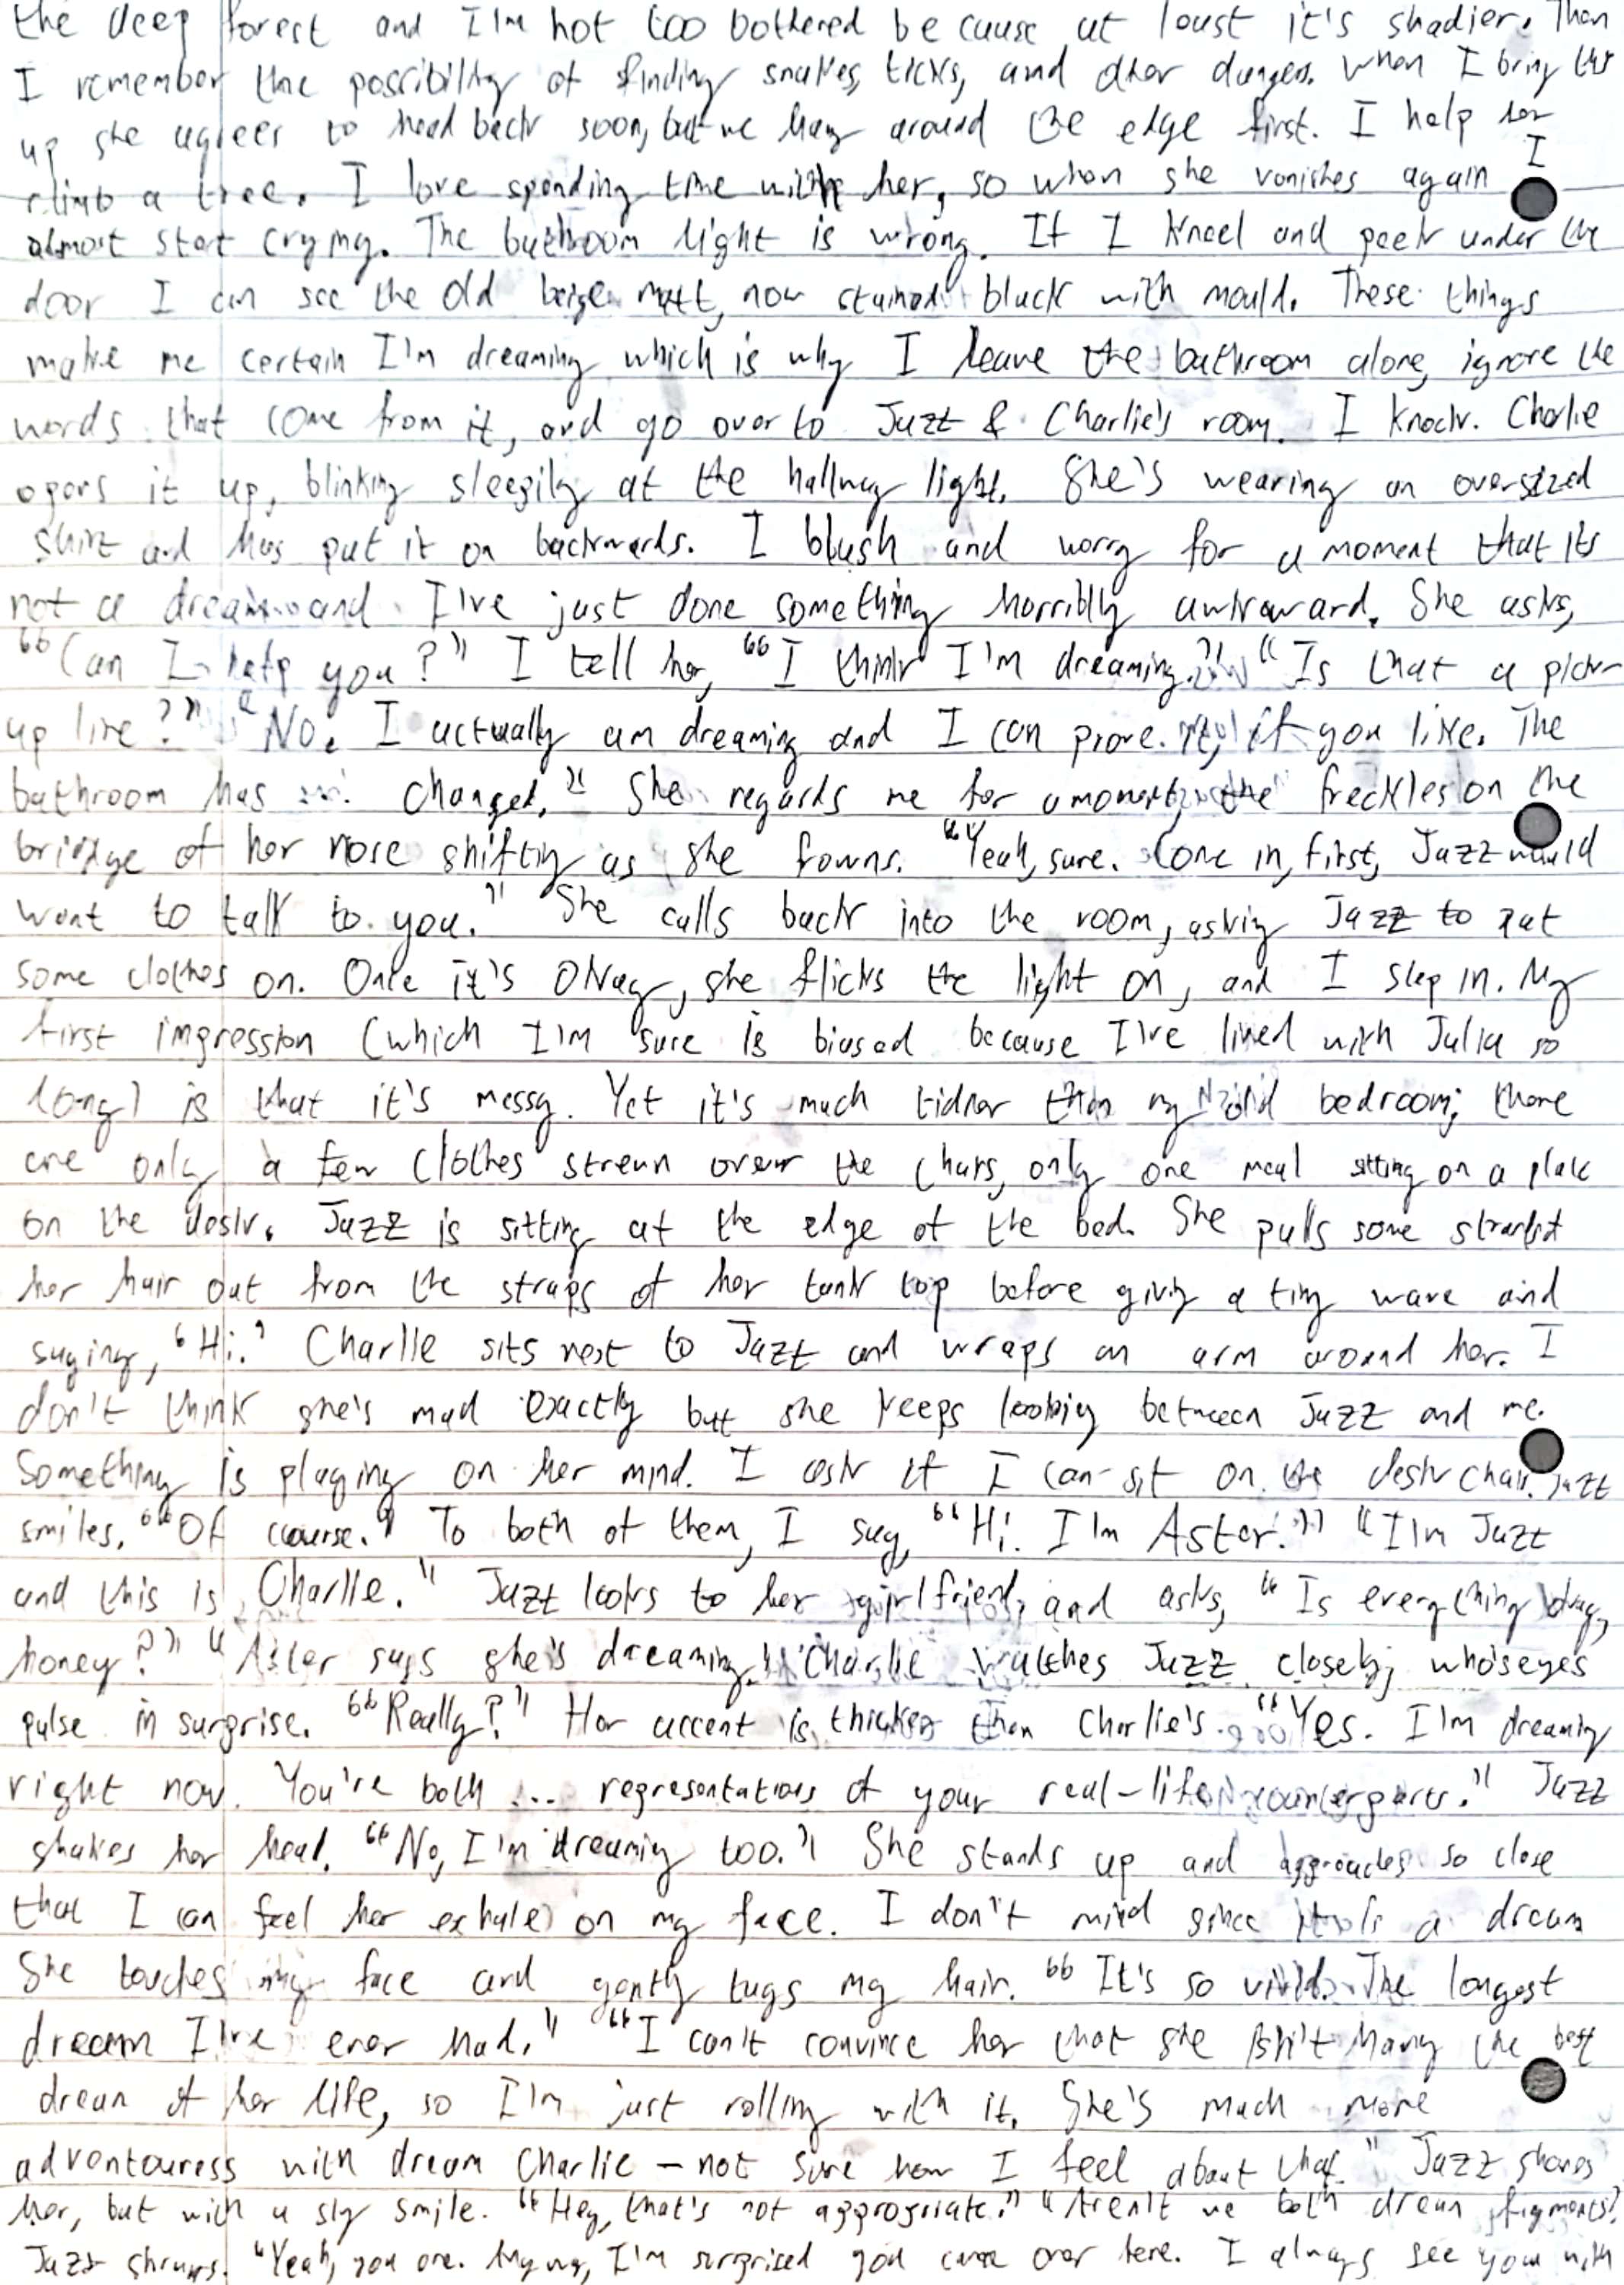 the deep forest and I'm not too bothered because at least it's shadier. Then
I remember the possibility of finding snakes, ticks, and other dangers. When I bring this
up she agrees to head back soon, but we hang around the edge first. I help her
climb a tree. I love spending time with her, so when she vanishes again I
almost start crying. The bathroom light is wrong. If I kneel and peek under the
door I can see the old beige matt, now stained black with mould. These things
make me certain I'm dreaming which is why I leave the bathroom alone, ignore the
words that come from it, and go over to Jazz & Charlie's room. I knock. Charlie
opens it up, blinking sleepily at the hallway light. She's wearing an oversized
shirt and has put it on backwards. I blush and worry for a moment that its
not a dream and I've just done something horribly awkward. She asks,
"Can I help you?" I tell her, "I think I'm dreaming." "Is that a pick-
up line?" "No. I actually am dreaming and I can prove it, if you like. The
bathroom has changed." She regards me for a moment, the freckles on the
bridge of her nose shifting as she frowns. "Yeah, sure. Come in, first, Jazz would
want to talk to you." She calls back into the room, asking Jazz to put
some clothes on. Once it's okay, she flicks the light on, and I step in. My
first impression (which I'm sure is biased because I've lived with Julia so
long) is that it's messy. Yet it's much tidier than my old bedroom; there
are only a few clothes strewn over the chairs, only one meal sitting on a plate
on the desk. Jazz is sitting at the edge of the bed. She pulls some strands of
her hair out from the straps of her tank top before giving a tiny wave and
saying, "Hi." Charlie sits next to Jazz and wraps an arm around her. I
don't think she's mad exactly but she keeps looking between Jazz and me.
Something is playing on her mind. I ask if I can sit on the desk chair. Jazz
smiles. "Of course." To both of them, I say, "Hi. I'm Aster." "I'm Jazz
and this is Charlie." Jazz looks to her girlfriend, and asks, "Is everything okay,
honey?" "Aster says she's dreaming." Charlie watches Jazz closely; who's eyes
pulse in surprise. "Really?" Her accent is thicker than Charlie's. "Yes. I'm dreaming
right now. You're both ... representations of your real-life counterparts." Jazz
shakes her head. "No, I'm dreaming too." She stands up and approaches so close
that I can feel her exhales on my face. I don't mind since it is a dream
She touches my face and gently tugs my hair. "It's so vivid. The longest
dream I've ever had." "I can't convince her that she isn't having the best
dream of her life, so I'm just rolling with it. She's much more
adventouress with dream Charlie - not sure how I feel about that." Jazz shoves
her, but with a sly smile. "Hey, that's not appropriate." "Aren't we both dream figments?
Jazz shrugs. "Yeah, you are. Anyway, I'm surprised you came over here. I always see you with